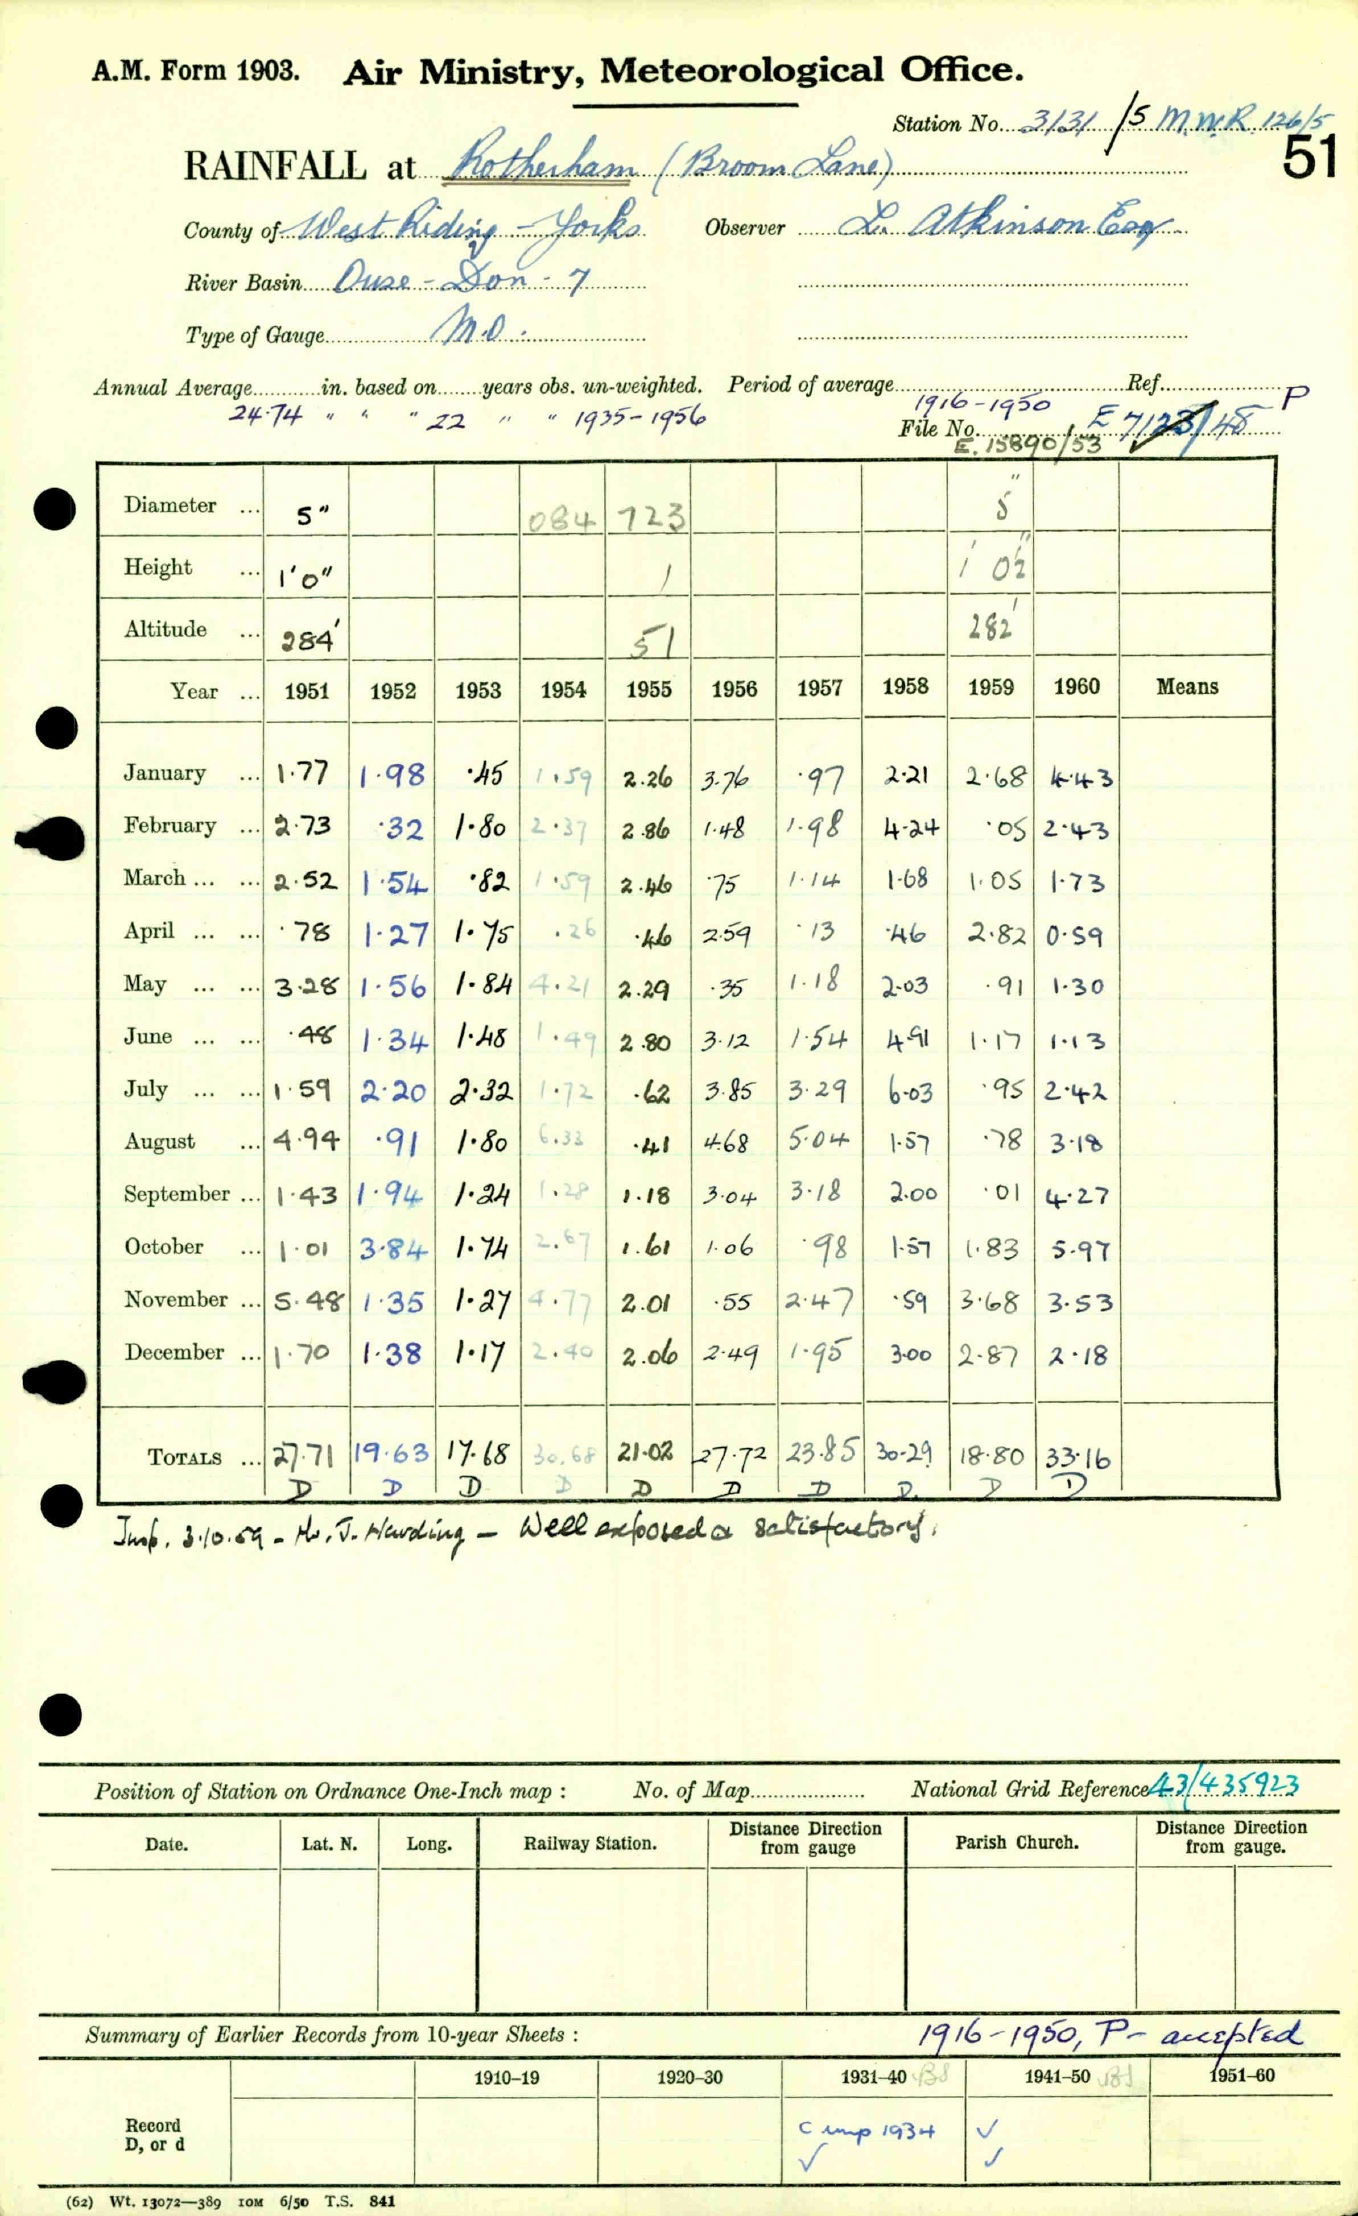 A.M. Form 1903. Air Ministry, Meteorological Office.
Station No. 3131/5 M.W.R. 126/5
51
RAINFALL at Rotherham (Broom Lane)
County of West Riding - Yorks Observer L. Atkinson Esq
River Basin Ouse - Don - 7
Type of Gauge M.O.
Annual Average in. based on years obs. un-weighted. Period of average 1916-1950 Ref. P
24.74 " " " 22 " " 1935-1956 File No. E 7123/48
E. 15890/53
Diameter ... 5" 084 723 5"
Height ... 1'0" 1 1' 0½"
Altitude ... 284' 51 282'
Year ... 1951 1952 1953 1954 1955 1956 1957 1958 1959 1960 Means
January ... 1.77 1.98 .45 1.59 2.26 3.76 .97 2.21 2.68 4.43
February ... 2.73 .32 1.80 2.37 2.86 1.48 1.98 4.24 .05 2.43
March ... ... 2.52 1.54 .82 1.59 2.46 .75 1.14 1.68 1.05 1.73
April ... ... .78 1.27 1.75 .26 .46 2.59 .13 .46 2.82 0.59
May ... ... 3.28 1.56 1.84 4.21 2.29 .35 1.18 2.03 .91 1.30
June ... ... .48 1.34 1.48 1.49 2.80 3.12 1.54 4.91 1.17 1.13
July ... ... 1.59 2.20 2.32 1.72 .62 3.85 3.29 6.03 .95 2.42
August ... 4.94 .91 1.80 6.33 .41 4.68 5.04 1.57 .78 3.18
September ... 1.43 1.94 1.24 1.28 1.18 3.04 3.18 2.00 .01 4.27
October ... 1.01 3.84 1.74 2.67 1.61 1.06 .98 1.57 1.83 5.97
November ... 5.48 1.35 1.27 4.77 2.01 .55 2.47 .59 3.68 3.53
December ... 1.70 1.38 1.17 2.40 2.06 2.49 1.95 3.00 2.87 2.18
TOTALS ... 27.71 19.63 17.68 30.68 21.02 27.72 23.85 30.29 18.80 33.16
D D D D D D D D. D D
Insp. 3.10.59 - Mr. J. Harding - Well exposed & satisfactory.
Position of Station on Ordnance One-Inch map : No. of Map National Grid Reference 43/435923
Date. Lat. N. Long. Railway Station. Distance Direction from gauge Parish Church. Distance Direction from gauge.
Summary of Earlier Records from 10-year Sheets : 1916-1950, P- accepted
1910–19 1920–30 1931–40 1941–50 1951–60
Record C imp 1934 ✓
D, or d ✓ ✓
(62) Wt. 13072—389 10M 6/50 T.S. 841